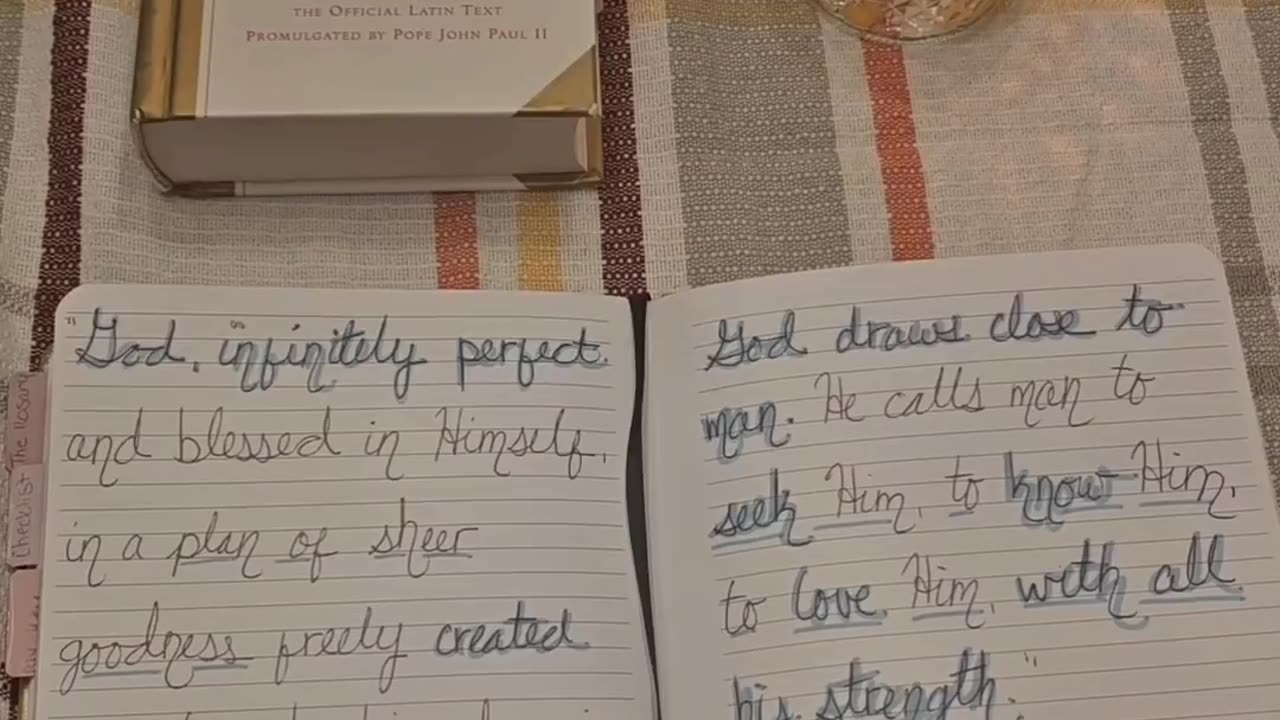 THE OFFICIAL LATIN TEXT
PROMULGATED BY POPE JOHN PAUL II
"God, infinitely perfect
and blessed in Himself,
in a plan of sheer
goodness freely created
God draws close to
man. He calls man to
seek Him, to know Him,
to love Him, with all
his strength."
Checklist
The Rosary